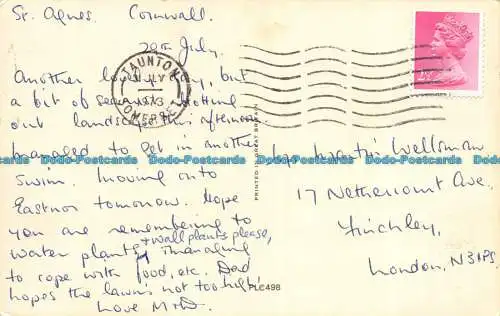 St. Agnes. Cornwall.
20th July.
Another lovely day, but
a bit of sea mist blotting
out landscape this afternoon
managed to get in another
swim. Moving onto
Eastnor tomorrow. Hope
you are remembering to
water plants, + wall plants please, managing
to cope with food, etc. Dad
hopes the lawn's not too high!
Love M + D.
TAUNTON
JLY
1973
SOMERSET
PRINTED IN GREAT BRITAIN
PLC498
2½P
Wellsman
17 Nethercourt Ave.
Finchley,
London, N3 1PS.
Dodo-Postcards Dodo-Postcards Dodo-Postcards Dodo-Postcards Dodo-Postcards